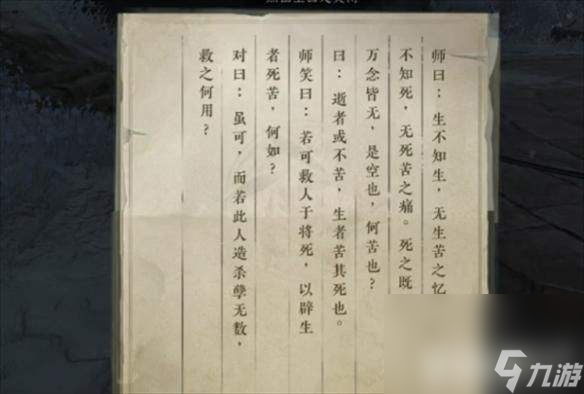 师曰：生不知生，无生苦之忆
不知死，无死苦之痛。死之既
万念皆无，是空也，何苦也？
曰：逝者或不苦，生者苦其死也。
师笑曰：若可救人于将死，以辟生
者死苦，何如？
对曰：虽可，而若此人造杀孽无数，
救之何用？
九游